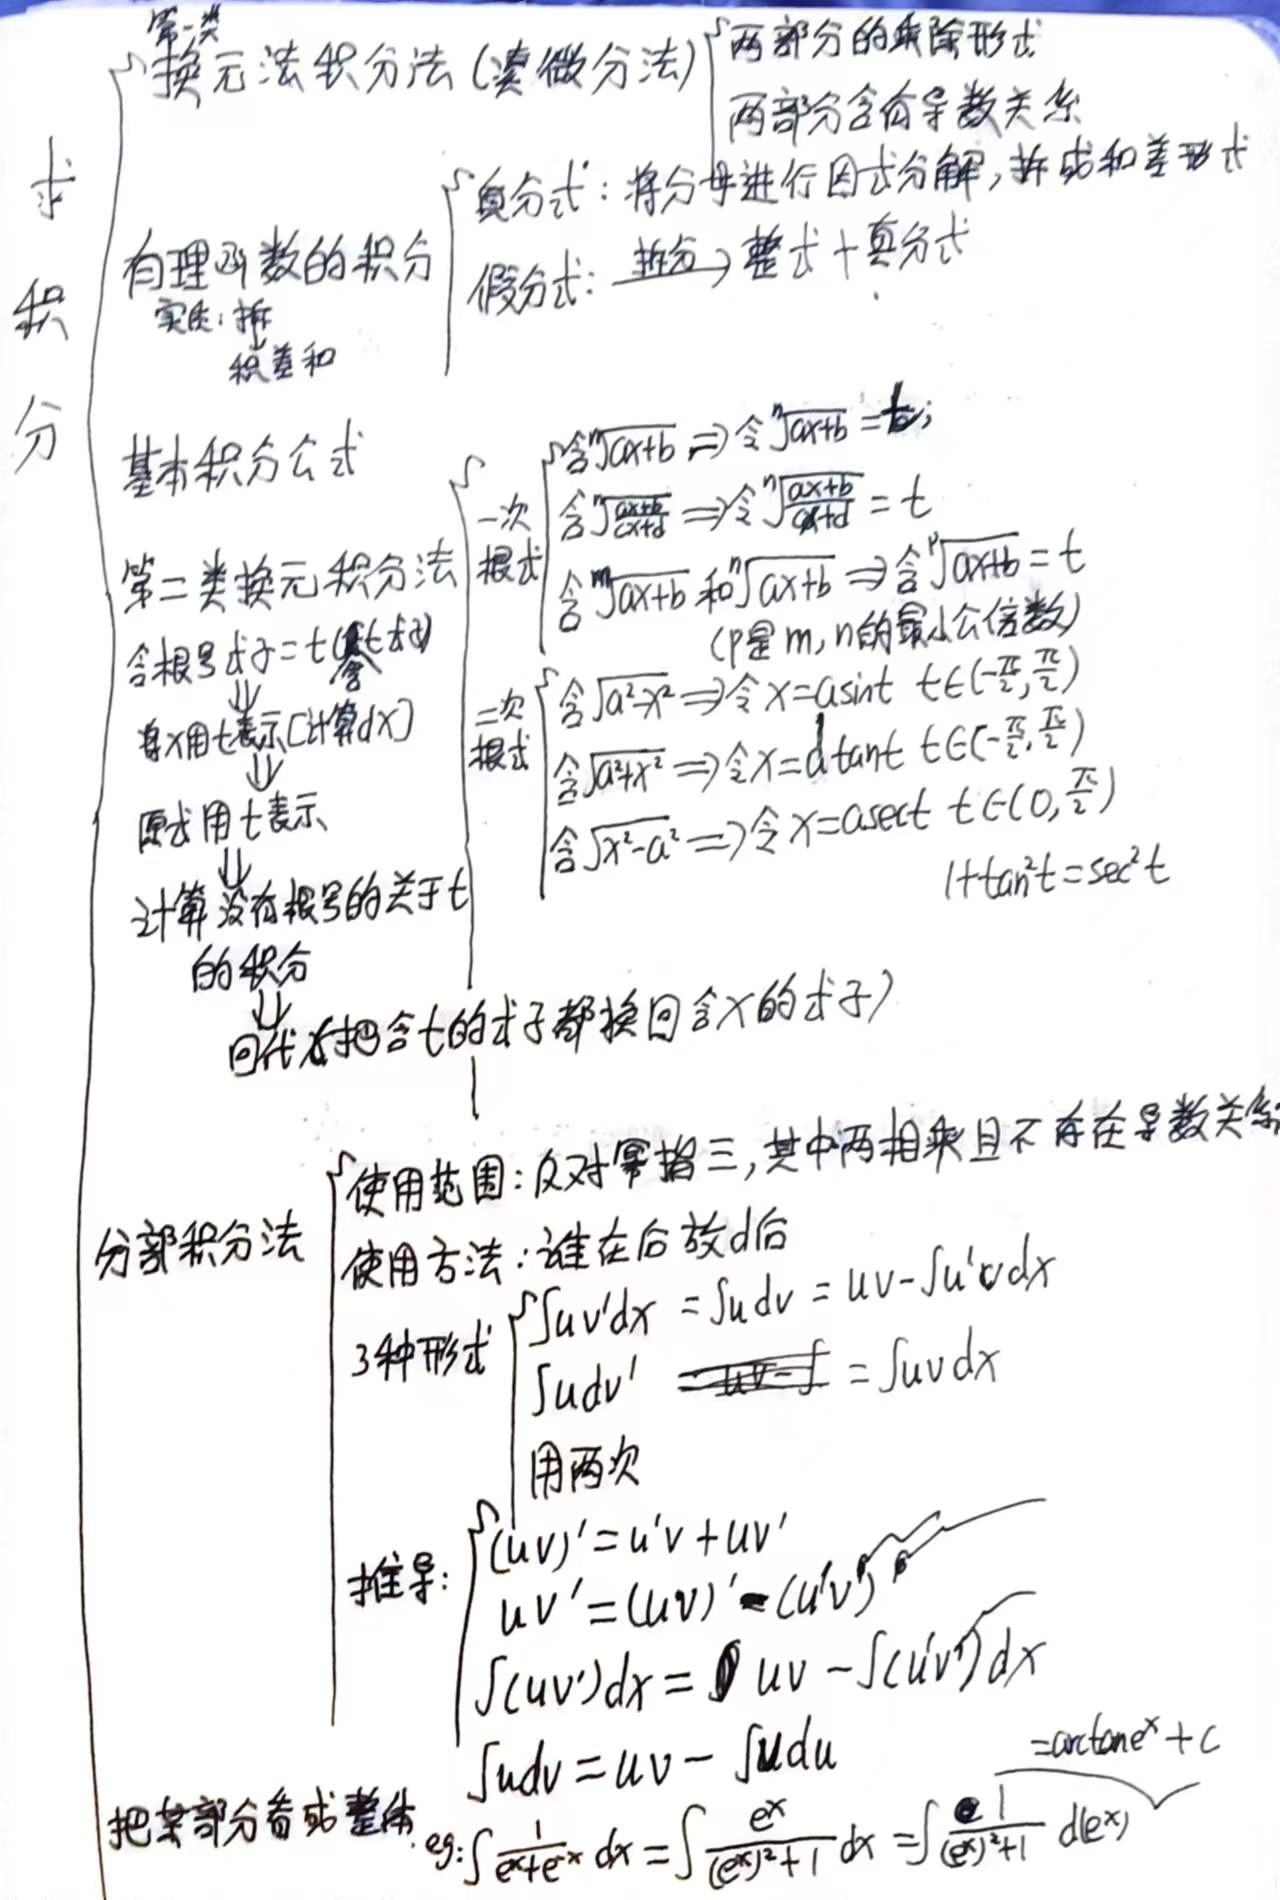 求积分
第一类
换元法积分法(凑微分法)
两部分的乘除形式
两部分含有导数关系
有理函数的积分
实质:拆
积差和
真分式:将分母进行因式分解,拆成和差形式
假分式: 拆分→ 整式+真分式
基本积分公式
第二类换元积分法
含根号式子=t
⇓
将x用t表示[计算dx]
⇓
原式用t表示
⇓
计算没有根号的关于t
的积分
⇓
回代(把含t的式子都换回含x的式子)
一次根式
含ⁿ√(ax+b) ⇒ 令ⁿ√(ax+b) = t;
含ⁿ√((ax+b)/(cx+d)) ⇒ 令ⁿ√((ax+b)/(cx+d)) = t
含ᵐ√(ax+b) 和 ⁿ√(ax+b) ⇒ 含ᵖ√(ax+b) = t
(p是m,n的最小公倍数)
二次根式
含√(a²-x²) ⇒ 令x=asint t∈(-π/2, π/2)
含√(a²+x²) ⇒ 令x=atant t∈(-π/2, π/2)
含√(x²-a²) ⇒ 令x=asect t∈(0, π/2)
1+tan²t=sec²t
分部积分法
使用范围:反对幂指三,其中两相乘且不存在导数关系
使用方法:谁在后放d后
3种形式
∫uv'dx = ∫udv = uv-∫u'vdx
∫udv' = ∫uvdx
用两次
推导:
(uv)'=u'v+uv'
uv'=(uv)'-(u'v)
∫(uv')dx = uv-∫(u'v)dx
∫udv=uv-∫vdu
把某部分看成整体
eg:∫1/(eˣ+e⁻ˣ) dx = ∫eˣ/((eˣ)²+1) dx = ∫1/((eˣ)²+1) d(eˣ)
=arctaneˣ+C